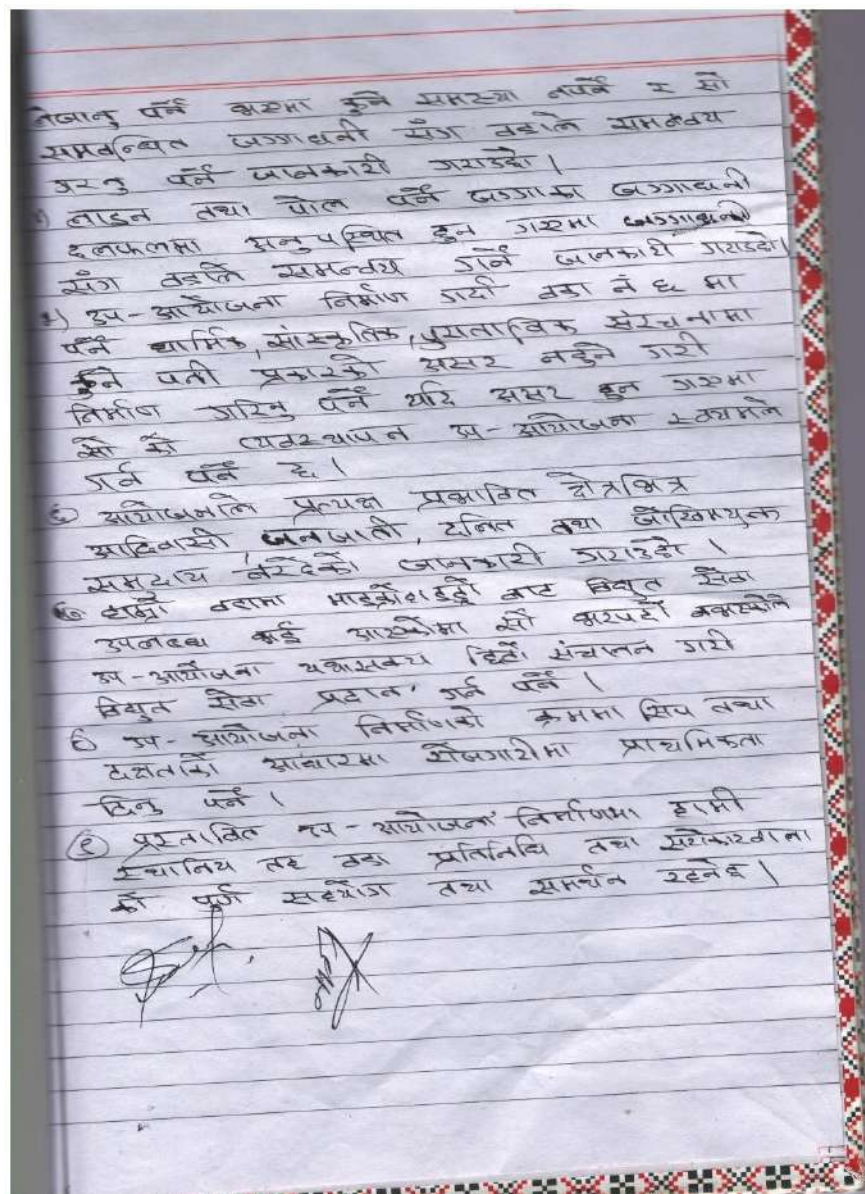 लैजानु पर्ने भएमा कुनै समस्या नपर्ने र सो
सम्बन्धित जग्गाधनी संग वडाले समन्वय
गरनु पर्ने जानकारी गराउदछौ।
लाइन तथा पोल पर्ने जग्गाका जग्गाधनी
छलफलमा अनुपस्थित हुन गएमा जग्गाधनी
संग वडाले समन्वय गर्ने जानकारी गराउदछौ।
५) उप-आयोजना निर्माण गर्दा वडा नं ६ मा
पर्ने धार्मिक, सांस्कृतिक, पुरातात्विक संरचनामा
कुनै पनी प्रकारको असर नहुने गरी
निर्माण गरिनु पर्ने यदि असर हुन गएमा
सो को व्यवस्थापन उप-आयोजना स्वयमले
गर्न पर्ने छ।
६ आयोजनाले प्रत्यक्ष प्रभावित क्षेत्रभित्र
आदिवासी, जनजाती, दलित तथा जोखिमयुक्त
समुदाय नरहेको जानकारी गराउदछौ।
हाम्रो वडामा माइक्रोहाइड्रो बाट विद्युत सेवा
उपलब्ध भई आएकोमा सो भरपर्दो नभएकोले
उप-आयोजना यथासक्य छिटो संचालन गरी
विद्युत सेवा प्रदान गर्न पर्ने।
८ उप-आयोजना निर्माणको क्रममा सिप तथा
दक्षताको आधारमा रोजगारीमा प्राथमिकता
दिनु पर्ने।
९ प्रस्तावित उप-आयोजना निर्माणमा हामी
स्थानिय तह वडा प्रतिनिधि तथा सरोकारवाला
को पुर्ण सहयोग तथा समर्थन रहनेछ।